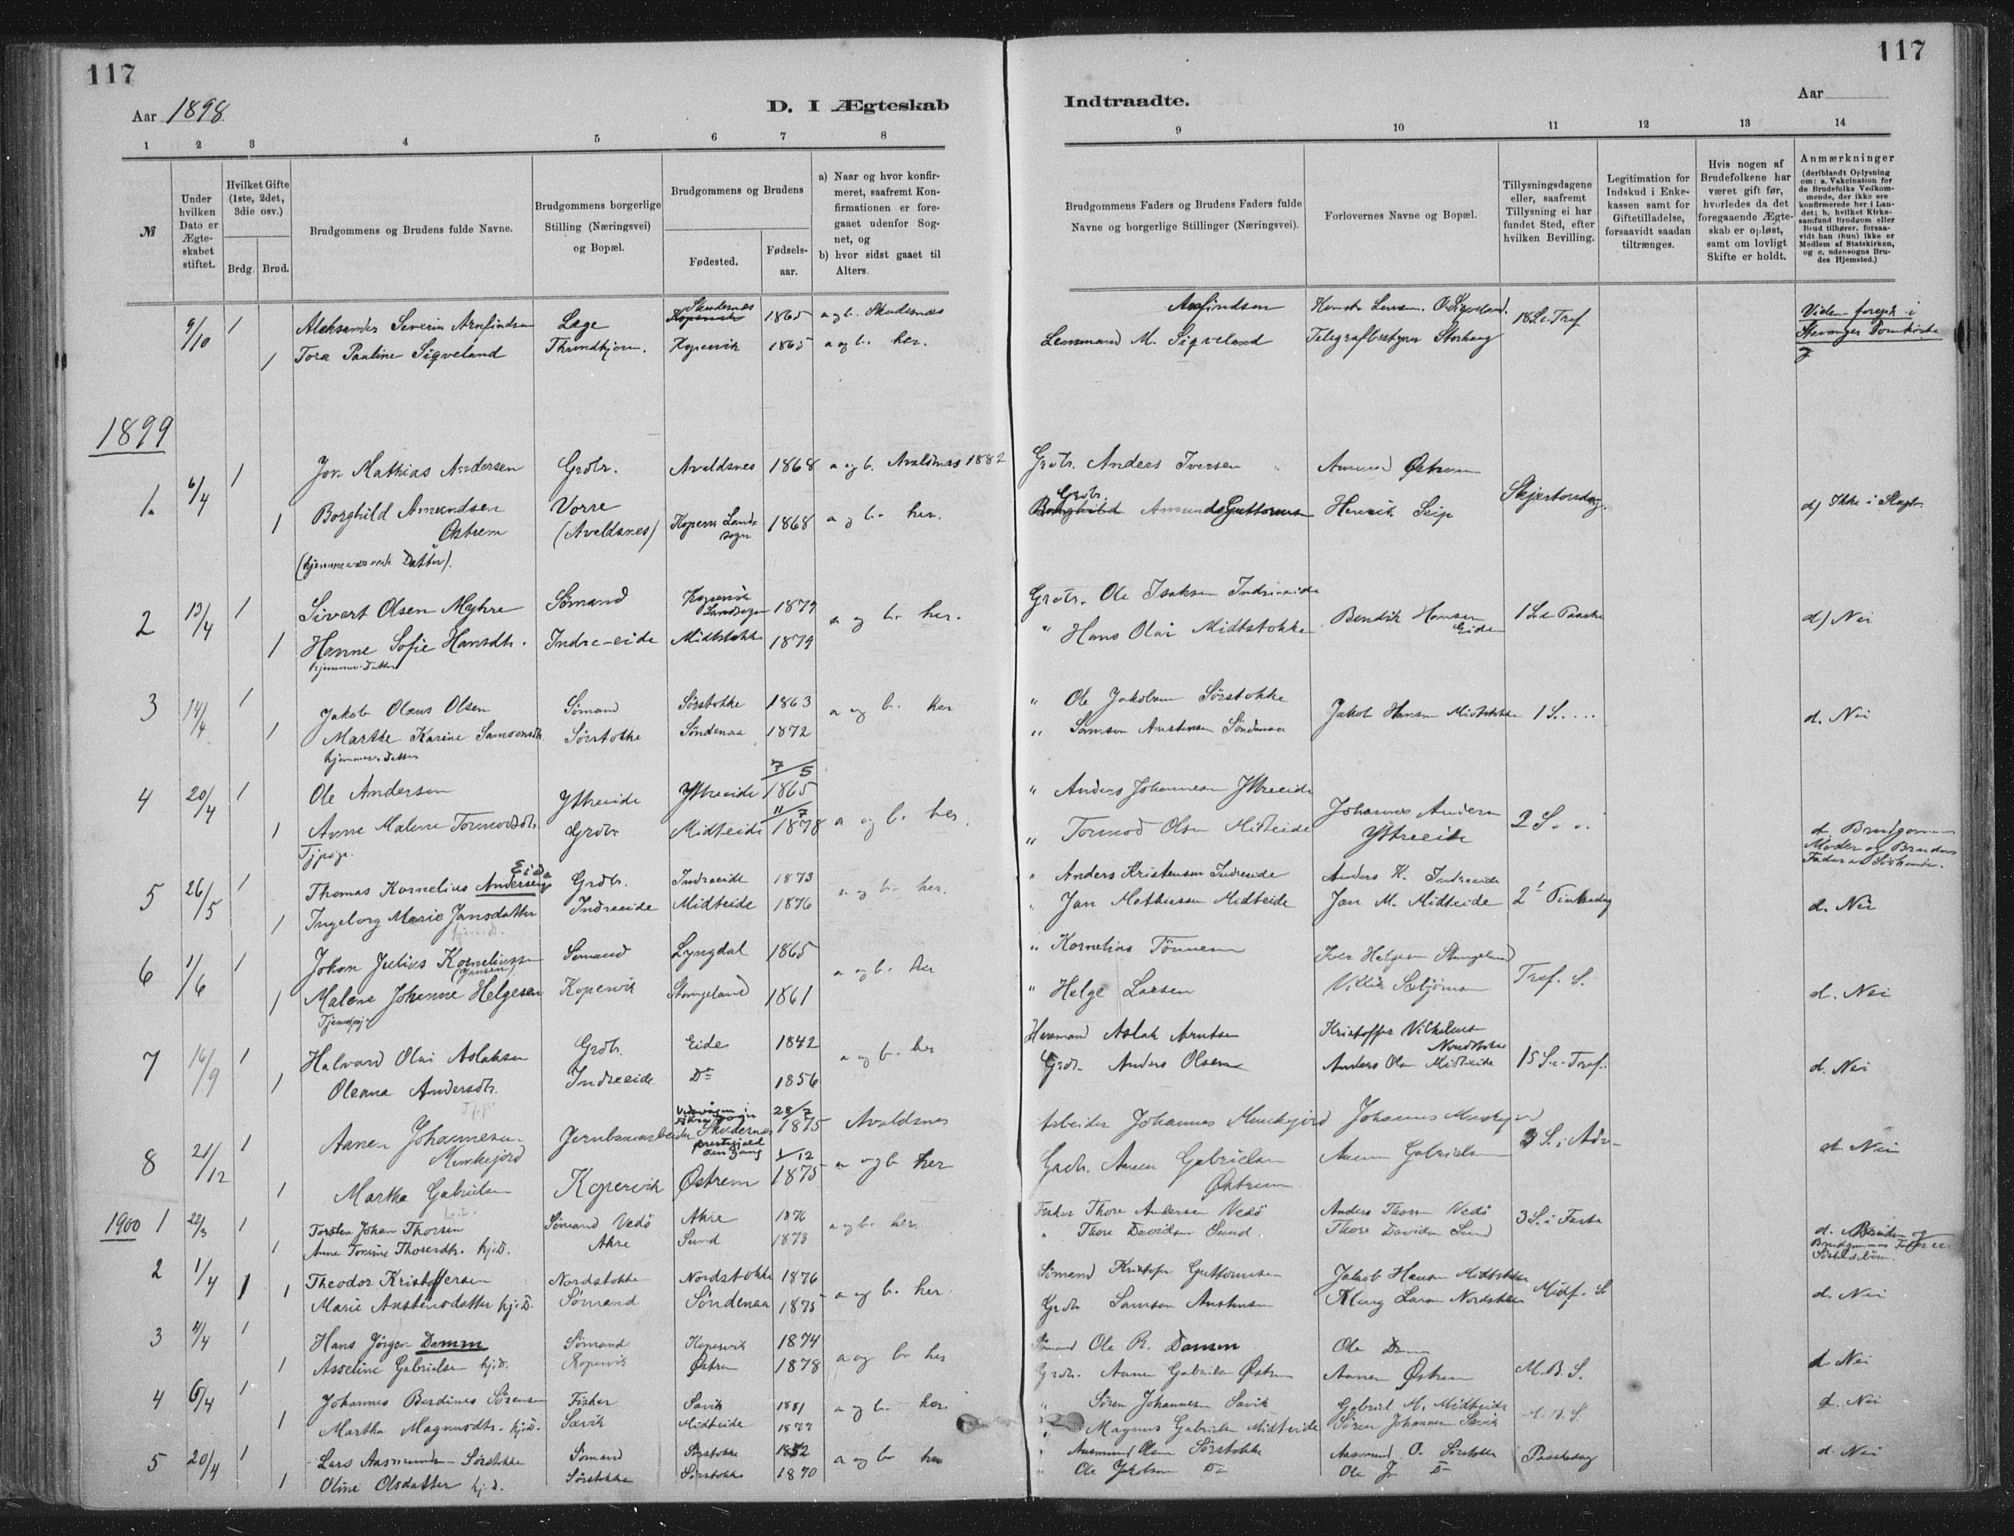 117
117
Aar 1898
D. I Ægteskab
Indtraadte.
Aar
1 2 3 4 5 6 7 8
9 10 11 12 13 14
№
Under hvilken Dato er Ægteskabet stiftet.
Hvilket Gifte (1ste, 2det, 3die osv.)
Brdg. Brud.
Brudgommens og Brudens fulde Navne.
Brudgommens borgerlige Stilling (Næringsvei) og Bopæl.
Brudgommens og Brudens
Fødested.
Fødselsaar.
a) Naar og hvor konfirmeret, saafremt Konfirmationen er foregaaet udenfor Sognet, og
b) hvor sidst gaaet til Alters.
Brudgommens Faders og Brudens Faders fulde Navne og borgerlige Stillinger (Næringsvei).
Forlovernes Navne og Bopæl.
Tillysningsdagene eller, saafremt Tillysning ei har fundet Sted, efter hvilken Bevilling.
Legitimation for Indskud i Enkekassen samt for Giftetilladelse, forsaavidt saadan tiltrænges.
Hvis nogen af Brudefolkene har været gift før, hvorledes da det foregaaende Ægteskab er opløst, samt om lovligt Skifte er holdt.
Anmærkninger
(deriblandt Oplysning om: a. Vakcination for de Brudefolks Vedkommende, der ikke ere konfirmerede her i Landet; b. hvilket Kirkesamfund Brudgom eller Brud tilhører, forsaavidt han (hun) ikke er Medlem af Statskirken, og c. udensogns Brudes Hjemsted.)
9/10 1 Aleksander Severin Arnfindsen Læge Skudernæs 1865 a og b. Skudernæs Arnfindsen 18 S. e. Tref
1 Tora Pauline Sigveland Thrundhjem. Kopervik 1865 a og b. her. M. Sigveland Telegrafbestyrer Storhaug Stavanger Domkirke
1899
1. 6/4 1 Jon Mathias Andersen Grdbr. Avaldsnes 1868 a og b. Avaldsnes 1882 Grdbr. Anders Iversen Østrem
1 Borghild Amundsen Østrem Vorre (Avaldsnes) Koperv. Landsogn 1868 a og b. her. Grdbr. Henrik Seip Skjærtorsdag d) Ikke i Slægt
(hjemmeværende Datter).
2 13/4 1 Sivert Olsen Myhre Sømand Kopervik Landsogn 1879 a og b. her. Grdbr. Ole Isaksen Indreeide Bendik Hansen Eide 1 S. e. Paaske d) Nei
1 Hanne Sofie Hansdtr. Indre-eide Midtstokke 1879 " Hans Olai Midtstokke
hjemmev. Datter
3 14/4 1 Jakob Olaus Olsen Sømand Sørstokke 1863 a og b. her " Ole Jakobsen Sørstokke Jakob Hansen Midtstokke 1 S. . . . . d. Nei
1 Marthe Karine Samsonsdtr. Sørstokke Søndenaa 1872 " Samson Austensen Søndenaa
hjemmev. Datter
4 20/4 1 Ole Andersen Ytreeide Ytreeide 7/5 1865 a og b. her. " Anders Johannesen Ytreeide Johannes Andersen Ytreeide 2 S. . .
1 Anne Malene Tormodsdtr. Grdbr. Midteide 11/7 1878 " Tormod Olsen Midteide d. Brudgommens Moder og Brudens Fader er Søskende.
Tjpige.
5 26/5 1 Thomas Kornelius Andersen Eide Grdbr. Indreeide 1873 a og b. her. " Anders Kristensen Indreeide Anders K. Indreeide
1 Ingeborg Marie Jansdatter Indreeide Midteide 1876 " Jan Mathiesen Midteide Jan M. Midteide 2' Pintsedag d. Nei
6 1/6 1 Johan Julius Korneliussen (Jansen) Sømand Lyngdal 1865 a og b. her " Kornelius Tønnesen Iver Helgesen Stangeland Tref. S.
1 Malene Johanne Helgesen Kopervik Stangeland 1861 " Helge Larsen d. Nei
7 16/9 1 Halvard Olai Aslaksen Grdb. Eide 1842 a og b. her Husmand Aslak Arntsen Kristoffer Vilhelmsen Nordstokke 15 S. e. Tref.
1 Oleana Andersdtr. Indreeide Do 1856 Grdbr. Anders Olsen Anders Olsen Midteide d. Nei
8 21/12 1 Aanen Johannesen Munkejord Jernbanearbeider Skudernæs prestgjeld 28/7 1875 Avaldsnes Arbeider Johannes Munkejord Johannes Munkejord 3 S. i Adv. d. Nei
1 Martha Gabrielsen Kopervik Østrem 1/12 1875 a og b her Grdbr. Aanen Gabrielsen Østrem Aanen Gabrielsen
1900 1 22/3 1 Torsten Johan Thorsen Sømand Vedø Akre 1876 a og b. her. Fisker Thore Andersen Vedø Anders Thorsen Vedø 3 S. i Faste
1 Anne Torine Thoresdtr. hj.D. Akre Sund 1878 " Thore Davidsen Sund Thore Davidsen Sund
2 1/4 1 Theodor Kristoffersen Nordstokke Nordstokke 1876 a og b. her. Sømand Kristofer Guttormsen Jakob Hansen Midtstokke Midf. S.
1 Marie Austensdatter hj.D. Sømand Søndenaa 1875 Grdb. Samson Austensen Nordstokke d. Nei
3 4/4 1 Hans Jørgen Damm Sømand Kopervik 1874 a og b her Sømand Ole R. Damm Ole Damm M.B.S.
1 Asseline Gabrielsen hj.D. Kopervik Østrem 1878 Grdbr. Aanen Gabrielsen Østrem Aanen Østrem d Nei
4 6/4 1 Johannes Berdines Sørensen Fisker Sævik 1881 a og b. her. " Søren Johannesen Sævik Gabriel M. Midteide M.B.S. d. Nei
1 Martha Magnusdtr. hj.D. Sævik Midteide 1877 " Magnus Gabrielsen Midteide Søren Johannesen Sævik
5 20/4 1 Lars Aasmundsen Sørstokke Sømand Sørstokke 1852 a og b. her " Aasmund Olsen Sørstokke Aasmund O. Sørstokke Paaskedag d. Nei
1 Oline Olsdatter hj.D. Sørstokke Sørstokke 1870 " Ole Jakobsen Do Ole J. Do